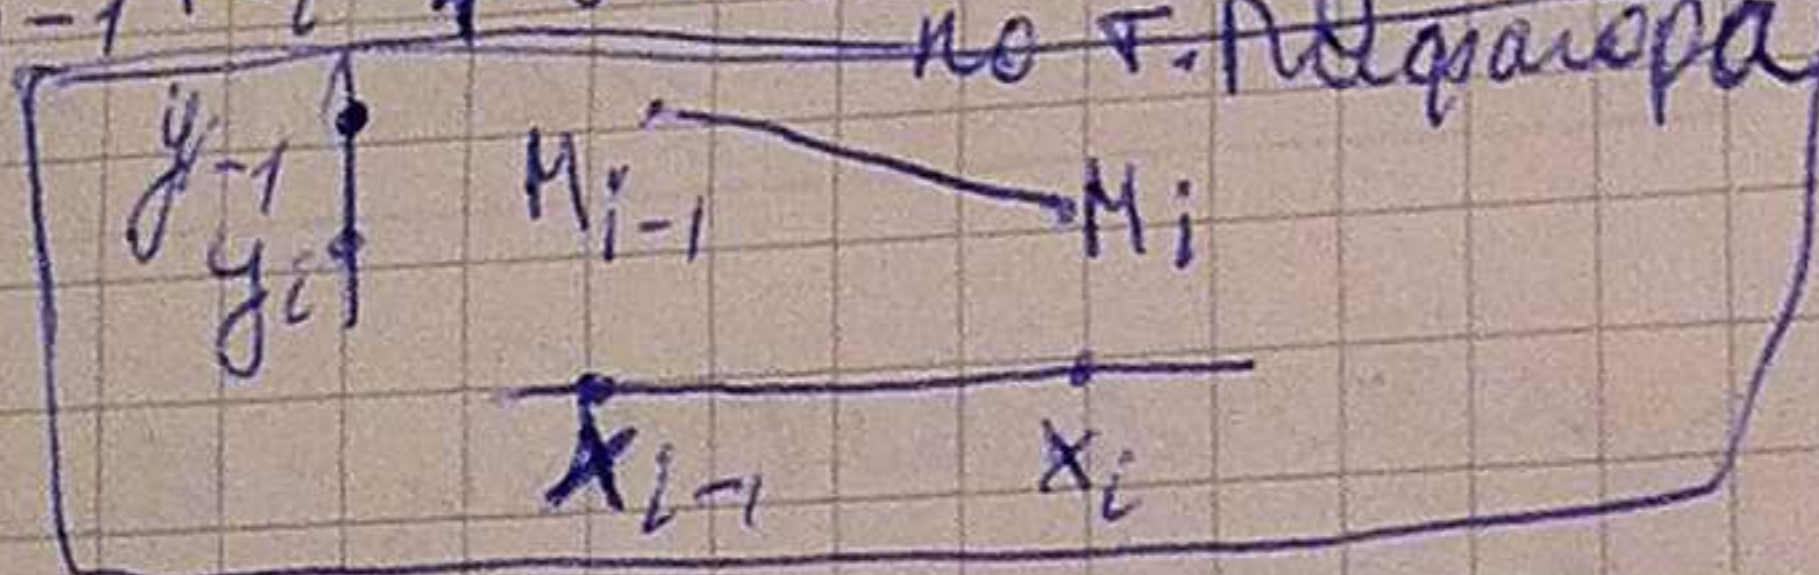 по т. Пифагора
y-1
M i-1 M i
y i
x i-1 x i